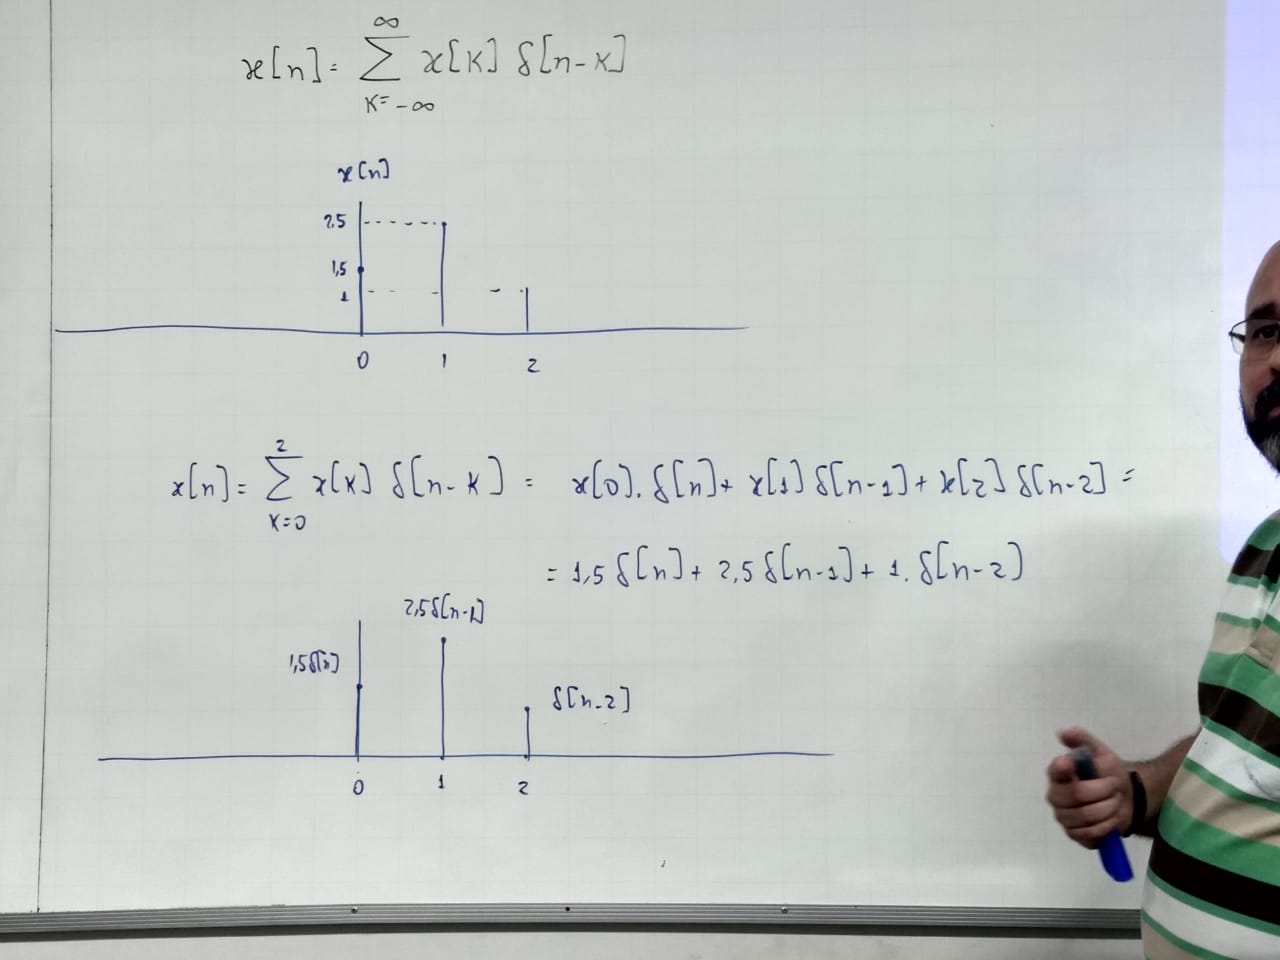 ∞
x[n] = ∑ x[k] δ[n-k]
k=-∞
x[n]
2,5
1,5
1
0 1 2
2
x[n] = ∑ x[k] δ[n-k] = x[0].δ[n] + x[1] δ[n-1] + x[2] δ[n-2] =
k=0
= 1,5 δ[n] + 2,5 δ[n-1] + 1. δ[n-2]
2,5 δ[n-1]
1,5 δ[n]
δ[n-2]
0 1 2